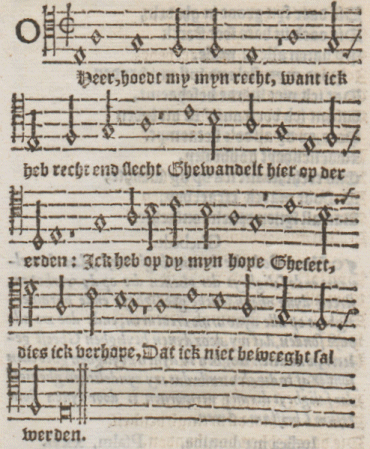 O Heer, hoedt my myn recht, want ick
heb recht end slecht Ghewandelt hier op der
erden: Ick heb op dy myn hope Ghesett,
dies ick verhope, Dat ick niet beweeght sal
werden.